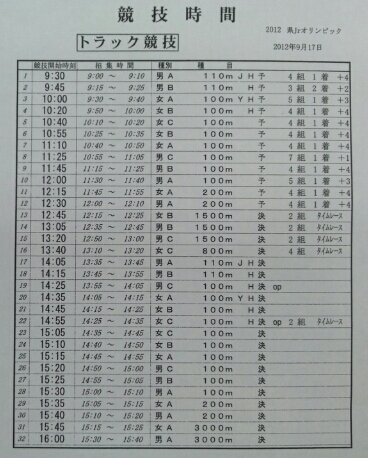 競技時間
2012 県Jrオリンピック
トラック競技
2012年9月17日
競技開始時刻 招集時間 種別 種目
1 9:30 9:00 ～ 9:10 男A 110mJH 予 4組 1着 +4
2 9:45 9:15 ～ 9:25 男B 110mH 予 3組 2着 +2
3 10:00 9:30 ～ 9:40 女A 100mYH 予 5組 1着 +3
4 10:20 9:50 ～ 10:00 女B 100mH 予 4組 1着 +4
5 10:40 10:10 ～ 10:20 女C 100m 予 4組 1着 +4
6 10:55 10:25 ～ 10:35 女B 100m 予 4組 1着 +4
7 11:10 10:40 ～ 10:50 女A 100m 予 4組 1着 +4
8 11:25 10:55 ～ 11:05 男C 100m 予 7組 1着 +1
9 11:45 11:15 ～ 11:25 男B 100m 予 4組 1着 +4
10 12:00 11:30 ～ 11:40 男A 100m 予 5組 1着 +3
11 12:15 11:45 ～ 11:55 女A 200m 予 4組 1着 +4
12 12:30 12:00 ～ 12:10 男A 200m 予 4組 1着 +4
13 12:45 12:15 ～ 12:25 女B 1500m 決 2組 タイムレース
14 13:05 12:35 ～ 12:45 男B 1500m 決 2組 タイムレース
15 13:20 12:50 ～ 13:00 男C 1500m 決 2組 タイムレース
16 13:40 13:10 ～ 13:20 女C 800m 決 4組 タイムレース
17 14:05 13:35 ～ 13:45 男A 110mJH 決
18 14:15 13:45 ～ 13:55 男B 110mH 決
19 14:25 13:55 ～ 14:05 男C 100mH 決 op
20 14:35 14:05 ～ 14:15 女A 100mYH 決
21 14:45 14:15 ～ 14:25 女B 100mH 決
22 14:55 14:25 ～ 14:35 女C 100mH 決 op 2組 タイムレース
23 15:05 14:35 ～ 14:45 女C 100m 決
24 15:10 14:40 ～ 14:50 女B 100m 決
25 15:15 14:45 ～ 14:55 女A 100m 決
26 15:20 14:50 ～ 15:00 男C 100m 決
27 15:25 14:55 ～ 15:05 男B 100m 決
28 15:30 15:00 ～ 15:10 男A 100m 決
29 15:35 15:05 ～ 15:15 女A 200m 決
30 15:40 15:10 ～ 15:20 男A 200m 決
31 15:45 15:15 ～ 15:25 女A 3000m 決
32 16:00 15:30 ～ 15:40 男A 3000m 決